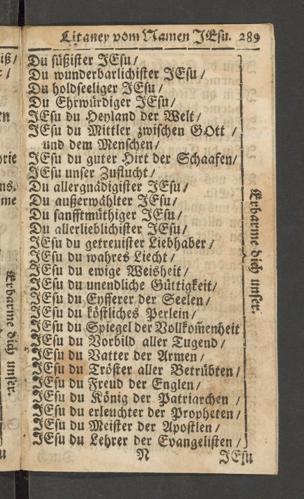 Litaney vom Namen JEsu. 289
Du süßister JEsu /
Du wunderbarlichister JEsu /
Du holdseeliger JEsu /
Du Ehrwürdiger JEsu /
JEsu du Heyland der Welt /
JEsu du Mittler zwischen GOtt /
und dem Menschen /
JEsu du guter Hirt der Schaafen /
JEsu unser Zuflucht /
Du allergnädigister JEsu /
Du außerwählter JEsu /
Du sanfftmüthiger JEsu /
Du allerlieblichister JEsu /
JEsu du getreuister Liebhaber /
JEsu du wahres Liecht /
JEsu du ewige Weisheit /
JEsu du unendliche Güttigkeit /
JEsu du Eyfferer der Seelen /
JEsu du köstliches Perlein /
JEsu du Spiegel der Vollkom̃enheit
JEsu du Vorbild aller Tugend /
JEsu du Vatter der Armen /
JEsu du Tröster aller Betrübten /
JEsu du Freud der Englen /
JEsu du König der Patriarchen /
JEsu du erleuchter der Propheten /
JEsu du Meister der Apostlen /
JEsu du Lehrer der Evangelisten /
Erbarme dich unser.
N JEsu
Erbarme dich unser.